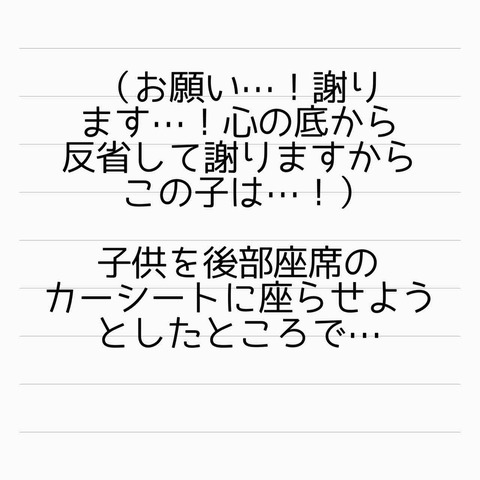 （お願い…！謝り
ます…！心の底から
反省して謝りますから
この子は…！）
子供を後部座席の
カーシートに座らせよう
としたところで…